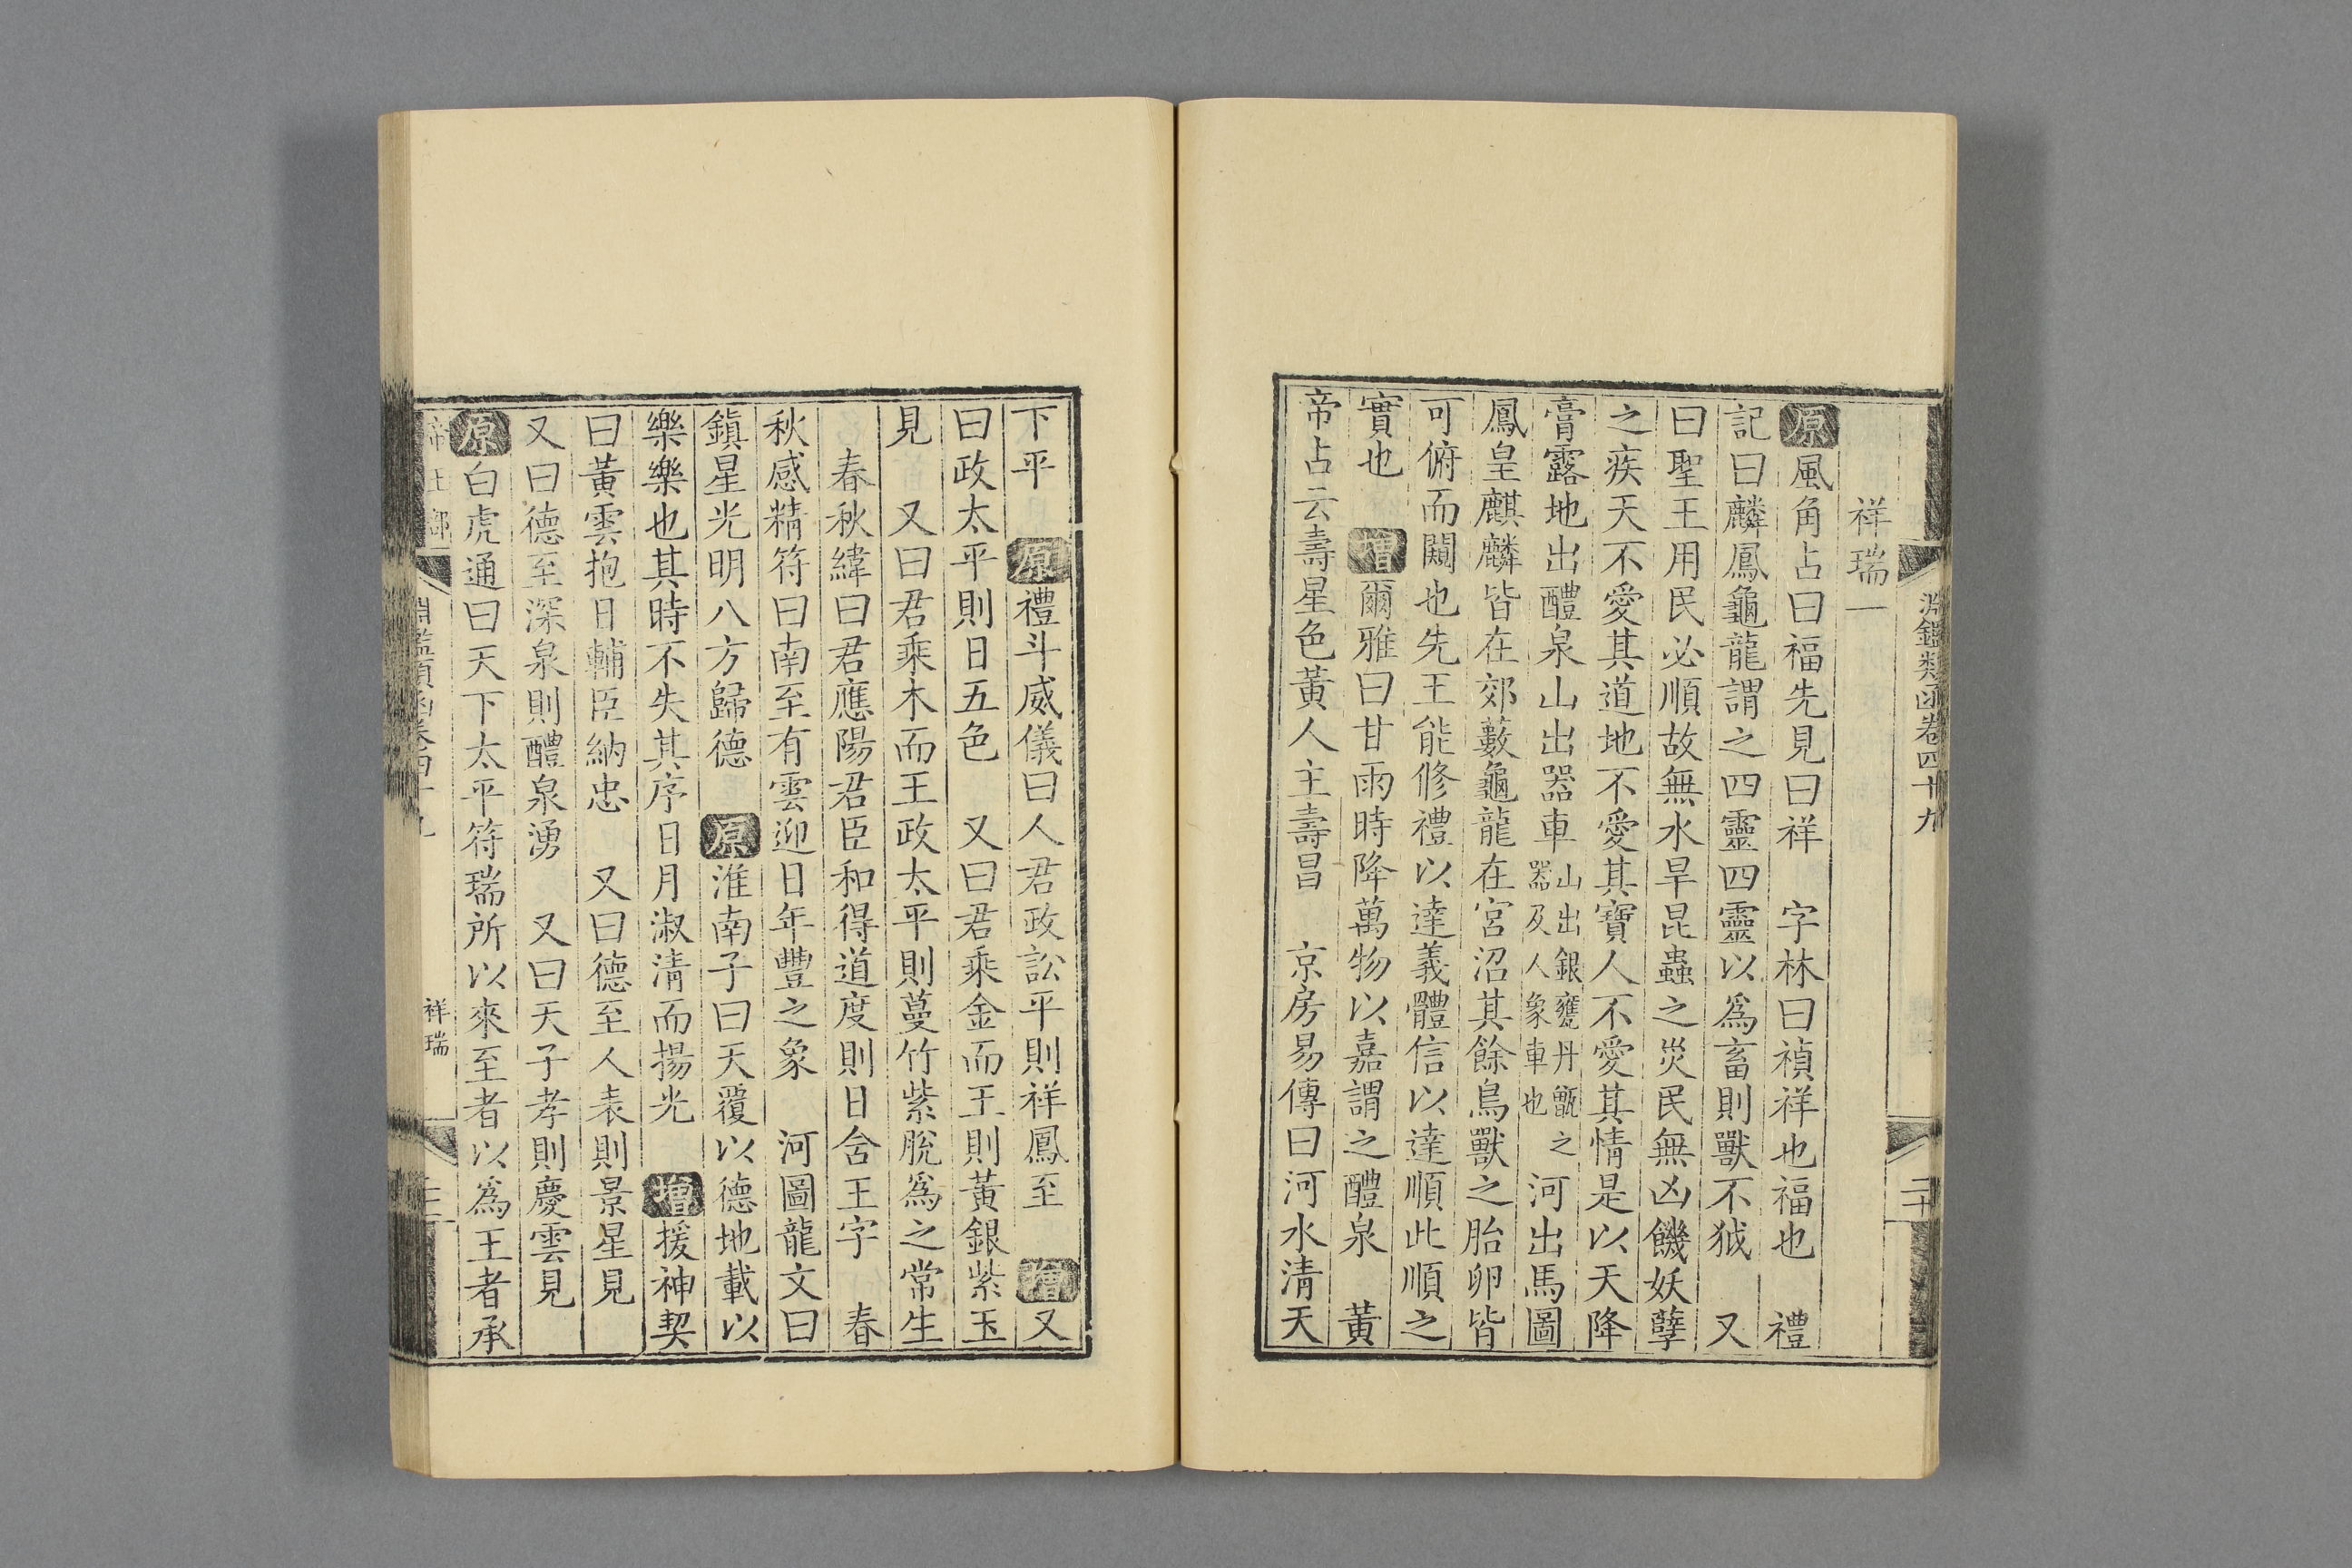 淵鑑類函卷四十九
二十
祥瑞一
原風角占曰福先見曰祥　字林曰禎祥也福也　禮
記曰麟鳳龜龍謂之四靈四靈以爲畜則獸不狘　又
曰聖王用民必順故無水旱昆蟲之災民無凶饑妖孽
之疾天不愛其道地不愛其寶人不愛其情是以天降
膏露地出醴泉山出器車山出銀甕丹甑之器及人象車也河出馬圖
鳳皇麒麟皆在郊藪龜龍在宮沼其餘鳥獸之胎卵皆
可俯而闚也先王能修禮以達義體信以達順此順之
實也　增爾雅曰甘雨時降萬物以嘉謂之醴泉　黃
帝占云壽星色黃人主壽昌　京房易傳曰河水清天
下平　原禮斗威儀曰人君政訟平則祥鳳至　增又
曰政太平則日五色　又曰君乘金而王則黃銀紫玉
見　又曰君乘木而王政太平則蔓竹紫脫爲之常生
春秋緯曰君應陽君臣和得道度則日含王字　春
秋感精符曰南至有雲迎日年豐之象　河圖龍文曰
鎮星光明八方歸德　原淮南子曰天覆以德地載以
樂樂也其時不失其序日月淑清而揚光　增援神契
曰黃雲抱日輔臣納忠　又曰德至人表則景星見
又曰德至深泉則醴泉湧　又曰天子孝則慶雲見
原白虎通曰天下太平符瑞所以來至者以爲王者承
帝王部
淵鑑類函卷四十九
祥瑞